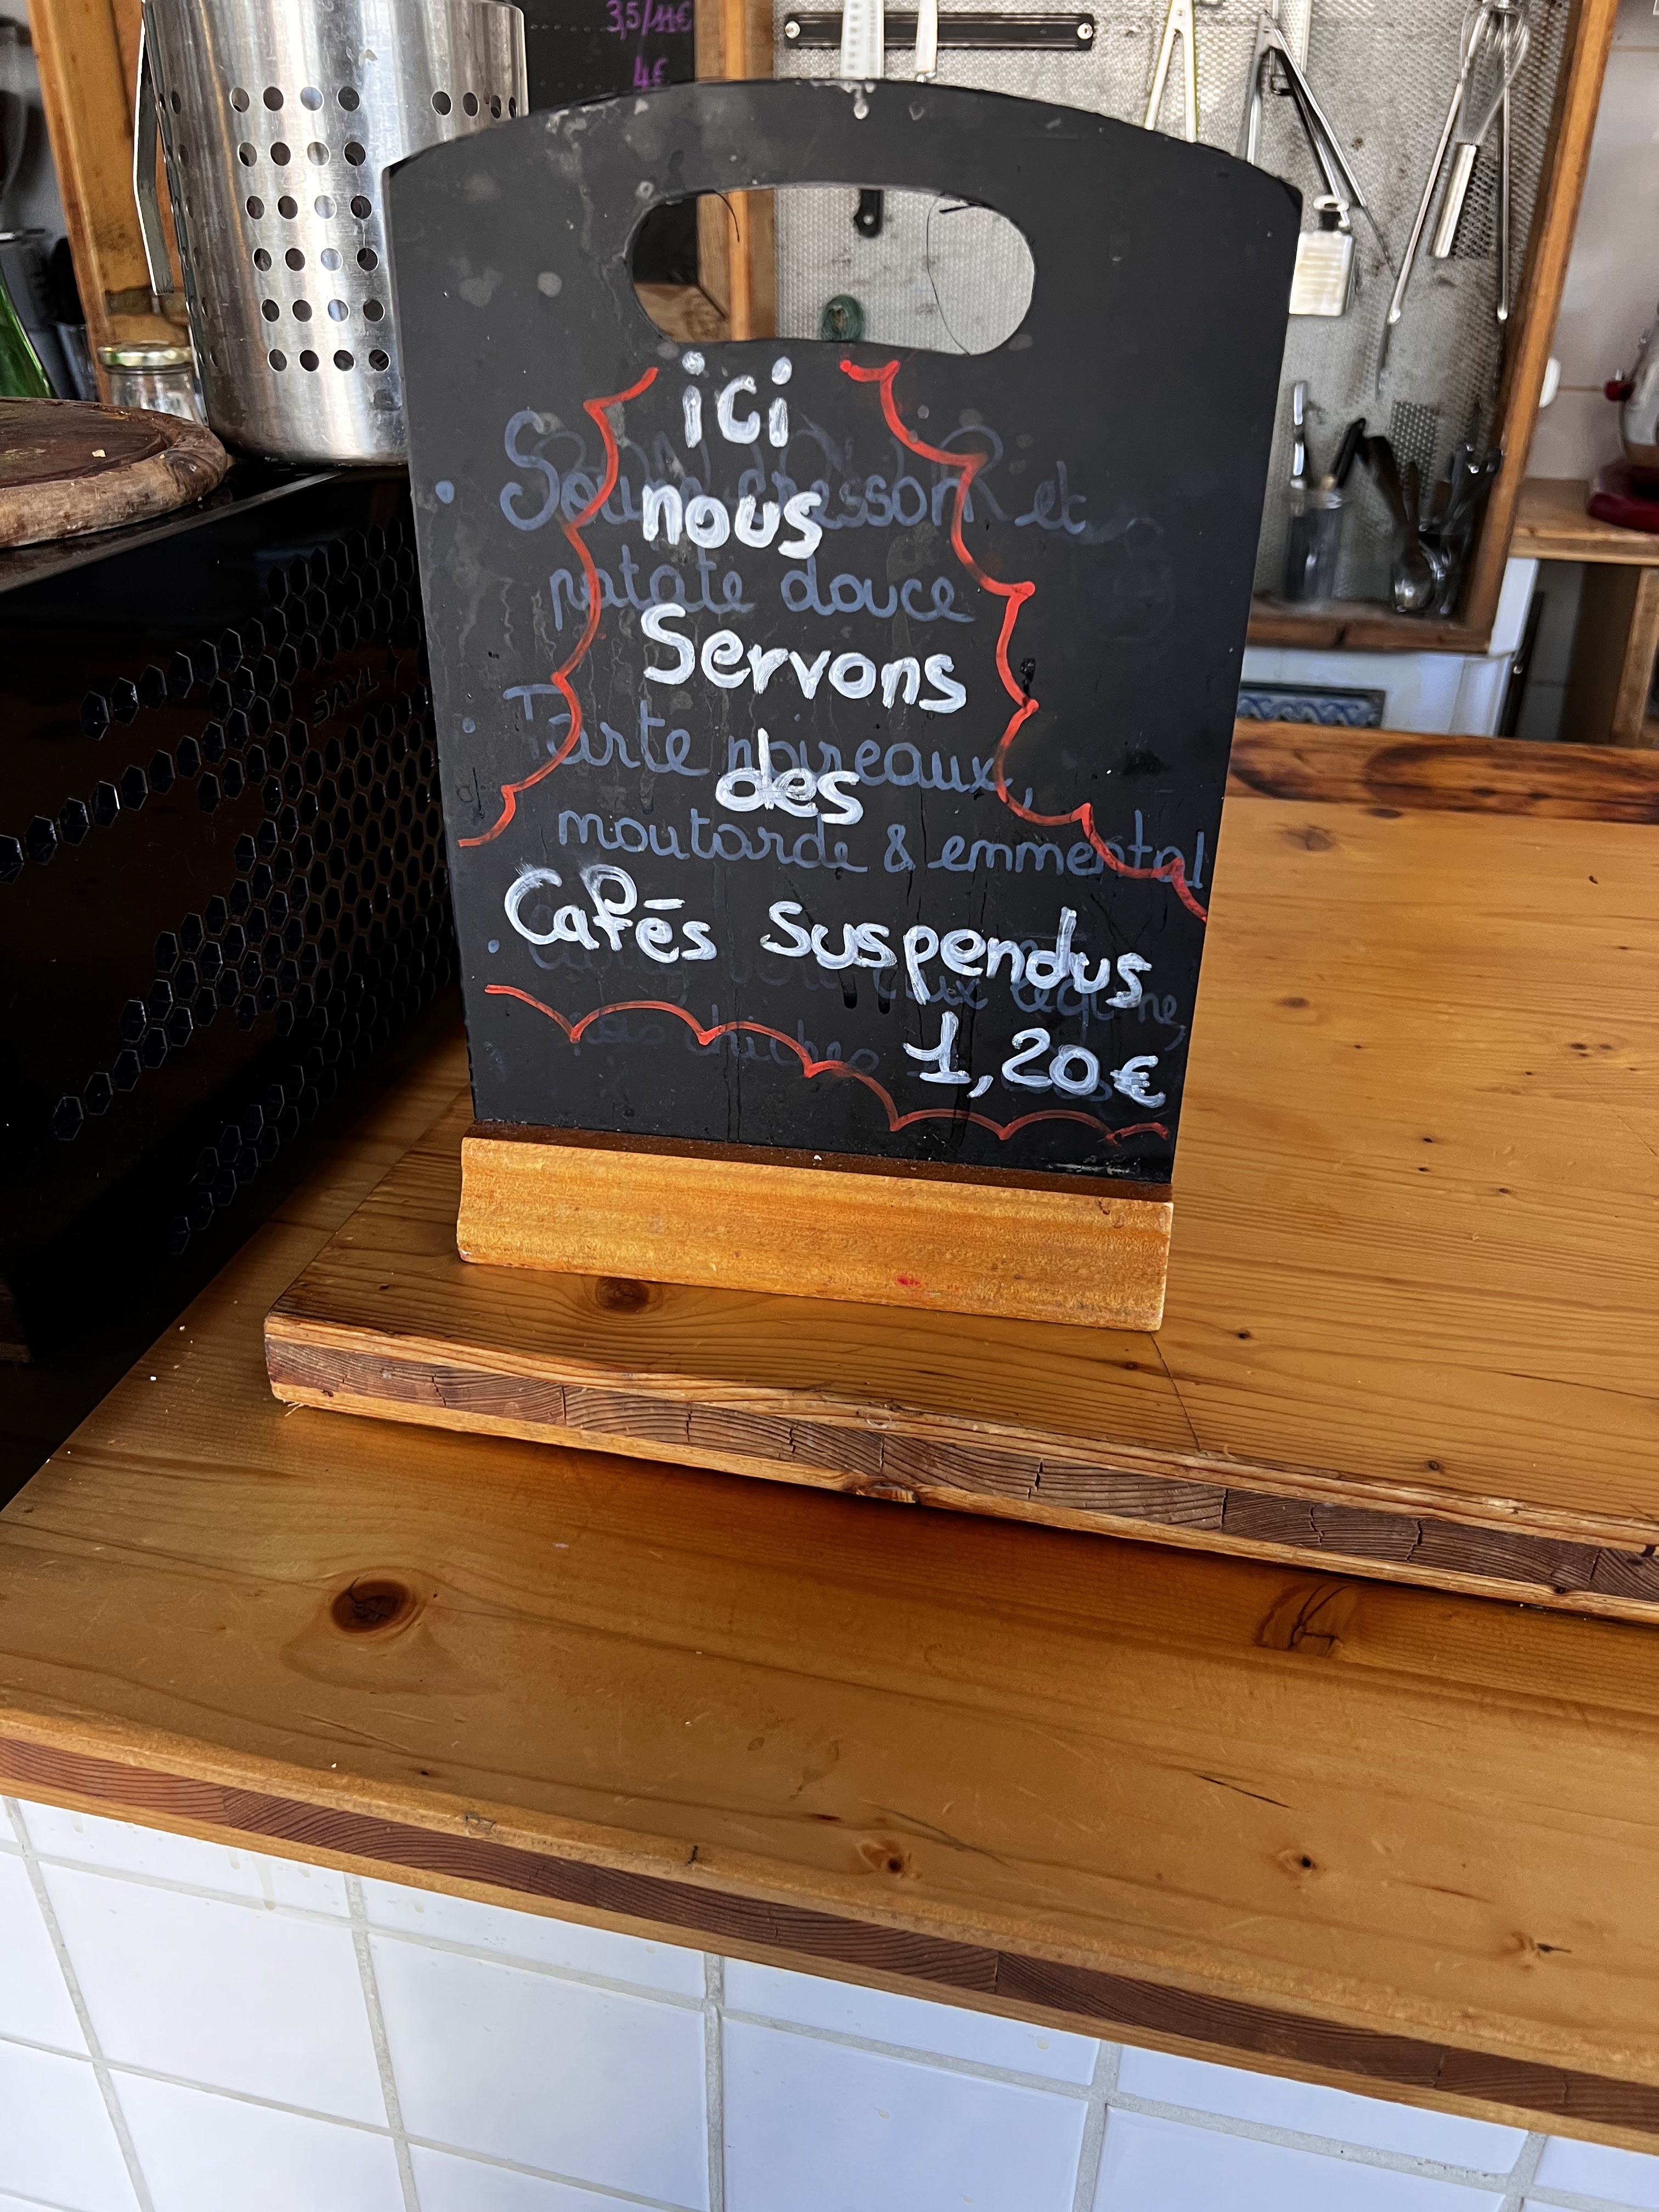 3,5/11€
4€
ici
nous
Servons
des
Cafés Suspendus
1,20€
et
patate douce
Tarte poireaux,
moutarde & emmental
pois chiches